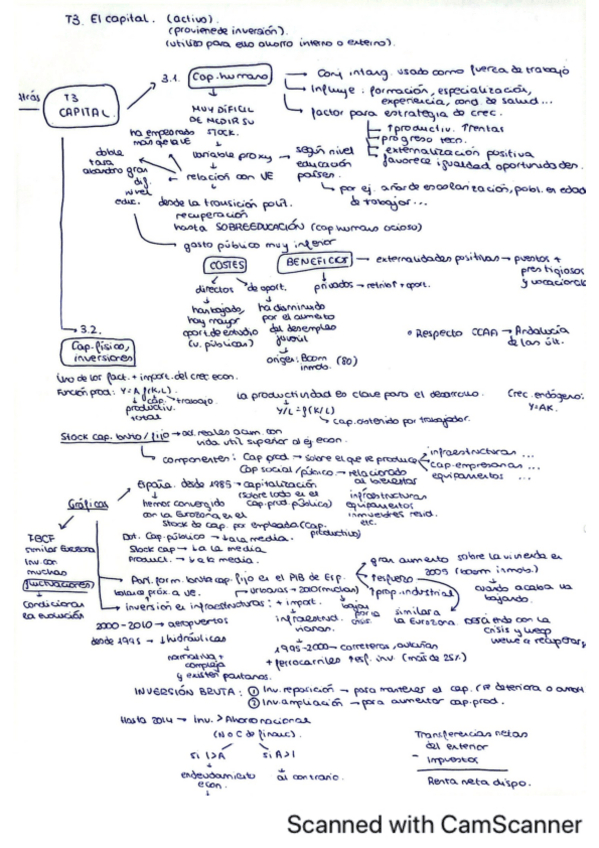 T3. El capital. (activo).
(proviene de inversión).
(utilizo para eso ahorro interno o externo).
atrás
T3
CAPITAL.
3.1. Cap. humano
Conj intang. usado como fuerza de trabajo
Influye: formación, especialización,
experiencia, cond. de salud...
factor para estrategia de crec.
↑productiv. ↑rentas
progreso tecn.
externalización positiva
favorece igualdad oportunidades.
MUY DIFÍCIL
DE MEDIR SU
STOCK.
ha empeorado
más que la UE
variable proxy → según nivel
educación
países.
por ej. años de escolarización, pobl. en edad
de trabajar...
doble
tasa
abandro gran
dif.
nivel
educ.
relación con UE
desde la transición polít.
recuperación
hasta SOBREEDUCACIÓN (cap humano ocioso)
gasto público muy inferior
COSTES
directos
de oport.
han bajado,
hay mayor
oport de estudio
(u. públicas)
ha disminuido
por el aumento
del desempleo
juvenil
origen: Boom
inmob. (80)
BENEFICIOS → externalidades positivas → puestos +
prestigiosos
y vocacional
privados → retrib↑ + oport.
• Respecto CCAA → Andalucía
de las últ.
3.2.
Cap. físico,
inversiones
Uno de los fact. + import. del crec econ.
Función prod: Y = A f(K, L).
cap. trabajo.
productiv.
total
La productividad es clave para el desarrollo.
Y/L = f(K/L)
cap. obtenido por trabajador.
Crec. endógeno:
Y=AK.
Stock cap. bruto / fijo → act. reales acum. con
vida util superior al ej econ.
componentes: Cap prod. → sobre el que se produce
infraestructuras ...
cap. empresarias ...
equipamientos ...
Cap social / público → relacionado
al bienestar
infraestructuras
equipamientos
inmuebles resid.
etc.
Gráficos
España. desde 1985 → capitalización
(sobre todo en el
cap. prod. público)
hemos convergido
con la Eurozona en el
Stock de cap. por empleado (Cap.
productivo)
Dot. Cap. público → ba la media.
Stock cap → ba la media
Product. → ba la media.
FBCF
similar Eurozona
Inv. con
muchas
fluctuaciones
Condicionar
la evolución
Port. form. bruta cap. fijo en el PIB de Esp.
gran aumento sobre la vivienda en
2005 (boom inmob.)
refuerzo
↑prop. industrial
cuando acaba va
bajando.
similar a
la Eurozona.
crisis y luego
vuelve a recuperar,
inversión en infraestructuras: + import.
urbanas → 2010 (nuclos)
infraestruct.
viarias.
bajan
por la
crisis.
2000-2010 → aeropuertos
desde 1995 → ↓hidráulicas
normativa +
compleja
y existen pantanos.
1995-2000 → carreteras, autovías
+ ferrocarriles (más de 25%)
INVERSIÓN BRUTA: ① Inv. reposición → para mantener el cap. (se deteriora o amort
② Inv. ampliación → para aumentar cap. prod.
Hasta 2014 → Inv. > Ahorro nacional
(N o C de financ).
si I>A
si A>I
endeudamiento
econ.
al contrario.
Transferencias netas
del exterior
- Impuestos
Renta neta dispo.
Scanned with CamScanner